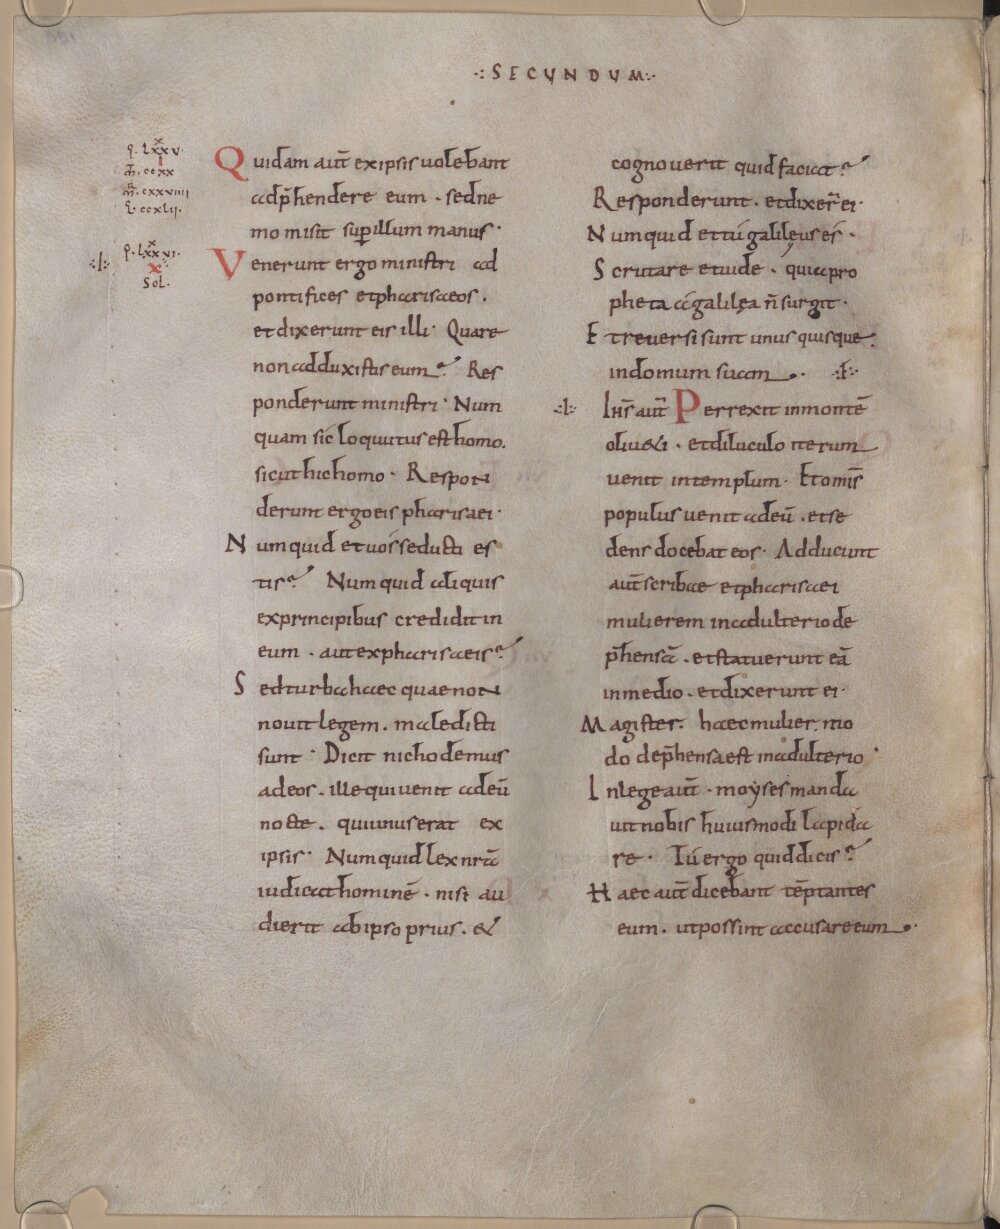 ·:SECUNDUM:·
q. Lxxv.
x
I
m̄. ccxx
m̄r. cxxviiii
L. ccxlii.
Quidam aut̄ exipsis uolebant
adp̄hendere eum · sedne
mo misit sup illum manus ·
q. Lxxvi.
x
x
Sol.
Venerunt ergo ministri ad
pontifices etpharisaeos .
etdixerunt eis illi · Quare
nonadduxistis eum? Res
ponderunt ministri · Num
quam sic loquutus est homo.
sicut hic homo · Respon
derunt ergo eis pharisaei ·
Numquid et uos seducti es
tis? Numquid aliquis
exprincipibus credidit in
eum · aut exphariseis?
Sed turba haec quae non
nouit legem . maledicti
sunt · Dicit nichodemus
adeos . ille qui uenit adeū
nocte . qui unus erat ex
ipsis · Numquid lex nr̄a
iudicat hominē · nisi au
dierit ab ipso prius . &
cognouerit quid faciat?
Responderunt · et dixer̄ ei ·
Numquid et tú galileus és ·
Scrutare et uide · quia pro
pheta á galilęa ñ surgit ·
Et reuersi sunt unus quisque
indomum suam .
Ihs̄ aut̄ Perrexit inmontē
oliu&i · et diluculo iterum
uenit intemplum · Et omīs
populus uenit adeū . et se
dens docebat eos · Adducunt
aut̄ scribae et pharisaei
mulierem inadulterio de
p̄hensā . et statuerunt eā
inmedio . et dixerunt ei ·
Magister · haec mulier mo
do dep̄hensa est inadulterio ·
Inlege aut̄ · moyses manda
uit nobis huiusmodi lapida
re · Tú ergo quid dicis?
Haec aut̄ dicebant tēptantes
eum . ut possint accusare eum .